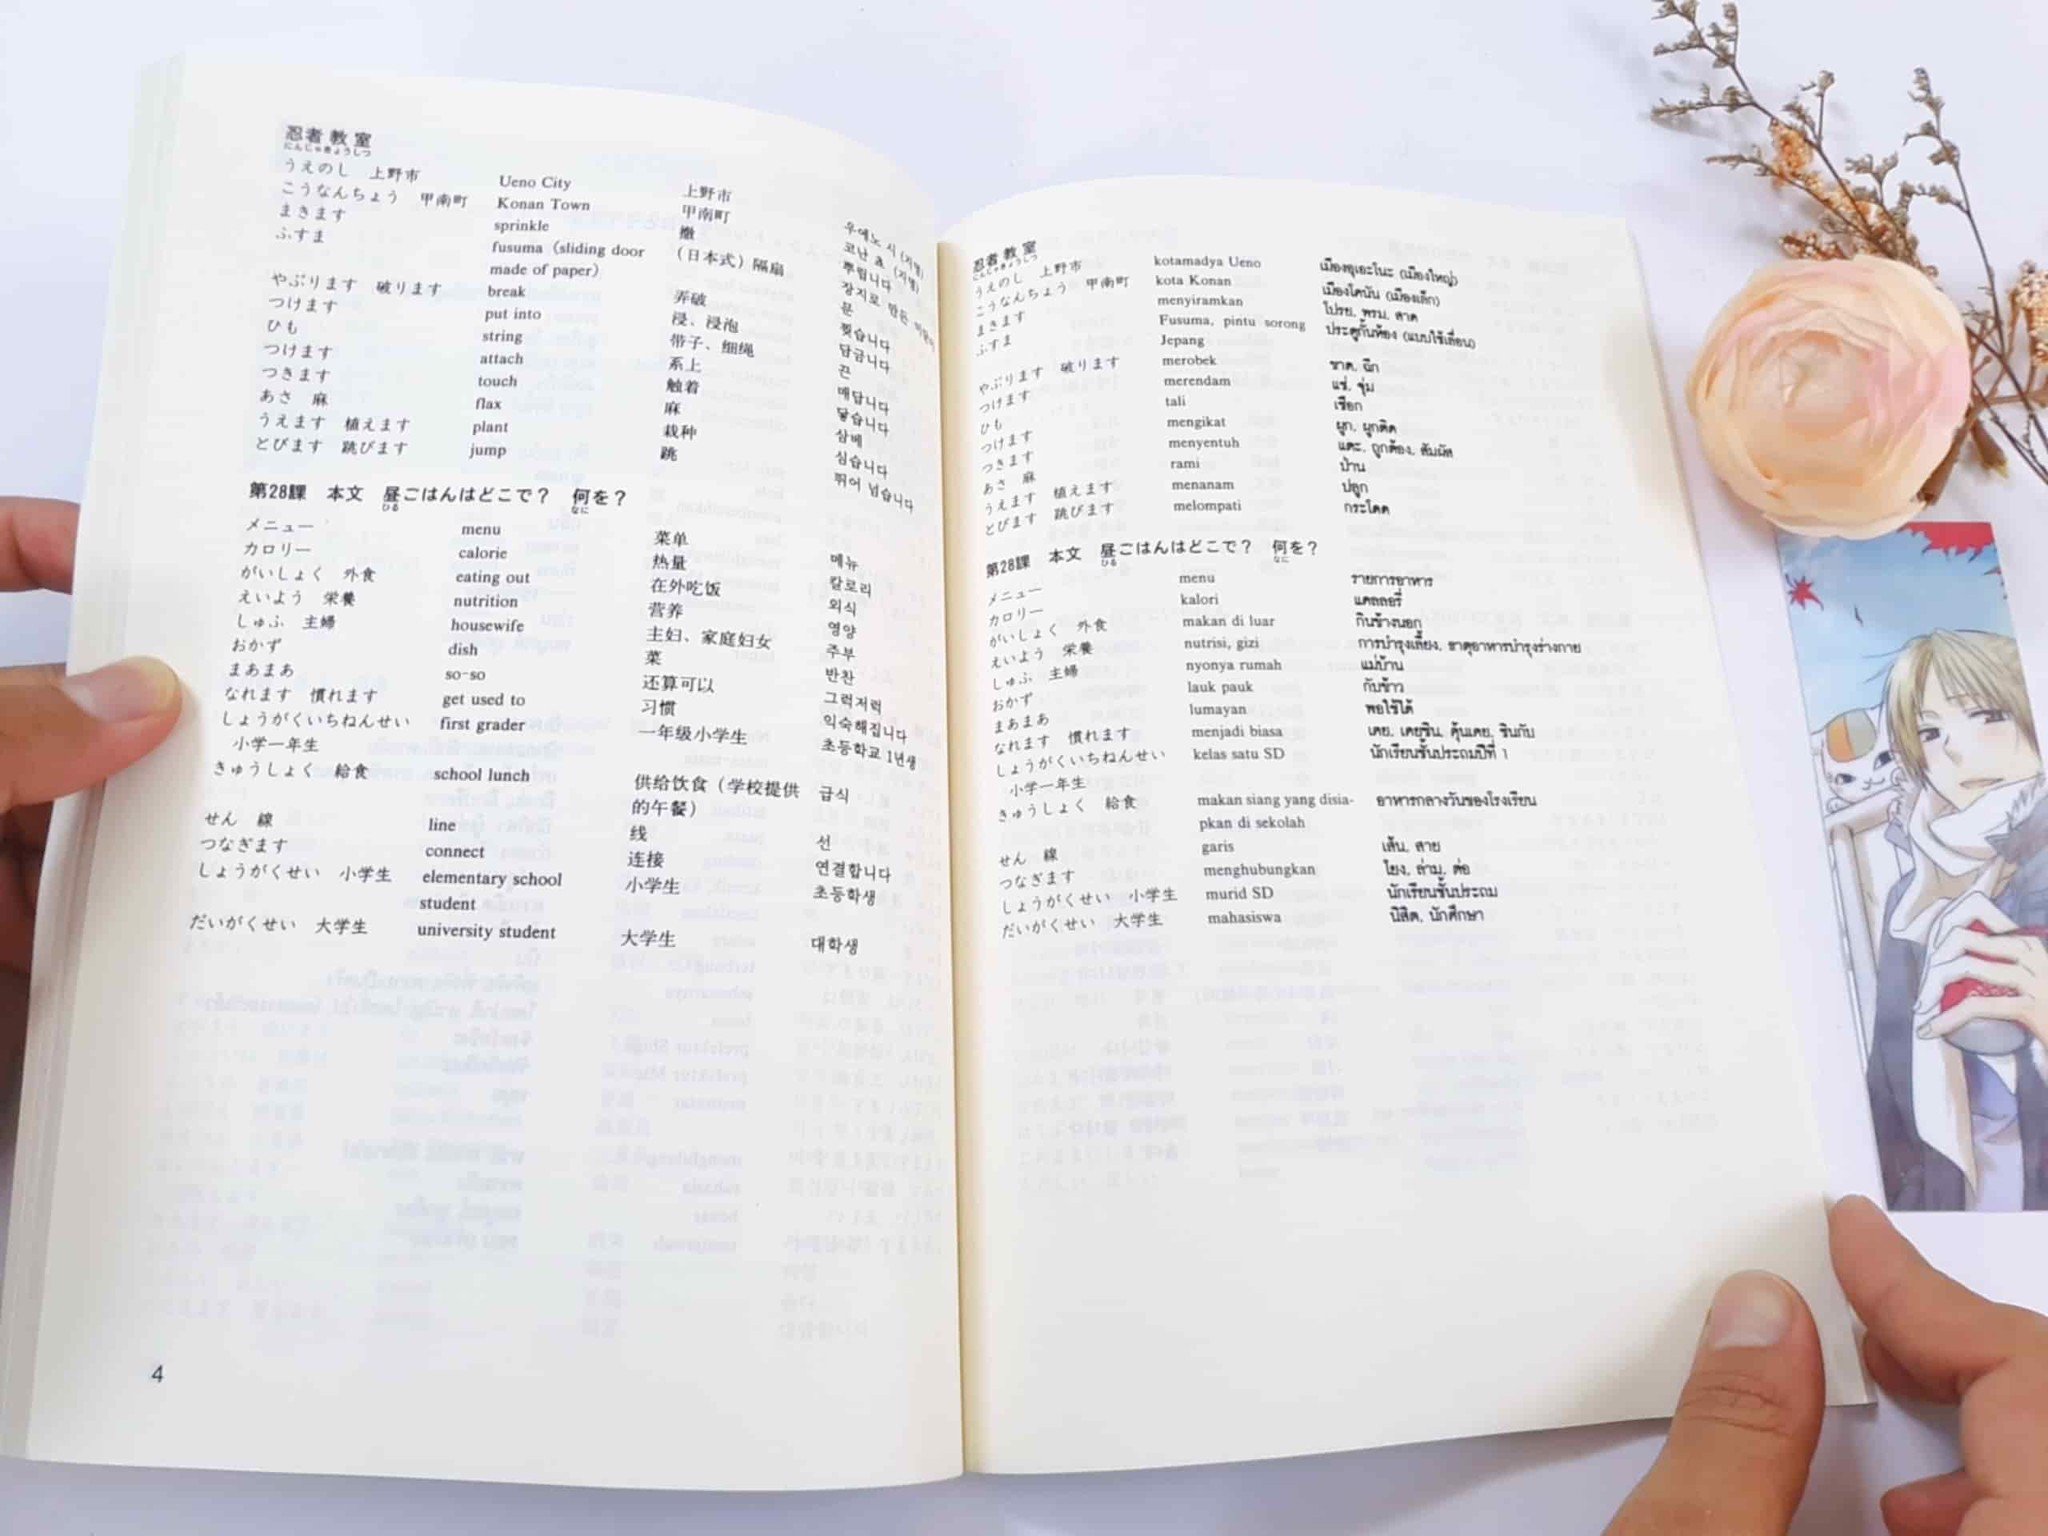 忍者教室
にんじゃきょうしつ
うえのし 上野市 Ueno City 上野市 우에노 시 (지명)
こうなんちょう 甲南町 Konan Town 甲南町 코난 쵸 (지명)
まきます sprinkle 撒 뿌립니다
ふすま fusuma (sliding door (日本式) 隔扇 장지로 만든 미닫이
made of paper) 문
やぶります 破ります break 弄破 찢습니다
つけます put into 浸、浸泡 담급니다
ひも string 带子、细绳 끈
つけます attach 系上 매답니다
つきます touch 触着 닿습니다
あさ 麻 flax 麻 삼베
うえます 植えます plant 栽种 심습니다
とびます 跳びます jump 跳 뛰어 넘습니다
第28課 本文 昼ごはんはどこで? 何を?
ひる なに
メニュー menu 菜单 메뉴
カロリー calorie 热量 칼로리
がいしょく 外食 eating out 在外吃饭 외식
えいよう 栄養 nutrition 营养 영양
しゅふ 主婦 housewife 主妇、家庭妇女 주부
おかず dish 菜 반찬
まあまあ so-so 还算可以 그럭저럭
なれます 慣れます get used to 习惯 익숙해집니다
しょうがくいちねんせい first grader 一年级小学生 초등학교 1년생
小学一年生
きゅうしょく 給食 school lunch 供给饮食（学校提供 급식
的午餐）
せん 線 line 线 선
つなぎます connect 连接 연결합니다
しょうがくせい 小学生 elementary school 小学生 초등학생
student
だいがくせい 大学生 university student 大学生 대학생
4
忍者教室
にんじゃきょうしつ
うえのし 上野市 kotamadya Ueno เมืองอุเอะโนะ (เมืองใหญ่)
こうなんちょう 甲南町 kota Konan เมืองโคนัน (เมืองเล็ก)
まきます menyiramkan โปรย, พรม, สาด
ふすま Fusuma, pintu sorong ประตูกั้นห้อง (แบบใช้เลื่อน)
Jepang
やぶります 破ります merobek ขาด, ฉีก
つけます merendam แช่, ชุ่ม
ひも tali เชือก
つけます mengikat ผูก, ผูกติด
つきます menyentuh แตะ, ถูกต้อง, สัมผัส
あさ 麻 rami ป่าน
うえます 植えます menanam ปลูก
とびます 跳びます melompati กระโดด
第28課 本文 昼ごはんはどこで? 何を?
ひる なに
メニュー menu รายการอาหาร
カロリー kalori แคลลอรี่
がいしょく 外食 makan di luar กินข้างนอก
えいよう 栄養 nutrisi, gizi การบำรุงเลี้ยง, ธาตุอาหารบำรุงร่างกาย
しゅふ 主婦 nyonya rumah แม่บ้าน
おかず lauk pauk กับข้าว
まあまあ lumayan พอใช้ได้
なれます 慣れます menjadi biasa เคย, เคยชิน, คุ้นเคย, ชินกับ
しょうがくいちねんせい kelas satu SD นักเรียนชั้นประถมปีที่ 1
小学一年生
きゅうしょく 給食 makan siang yang disia- อาหารกลางวันของโรงเรียน
pkan di sekolah
せん 線 garis เส้น, สาย
つなぎます menghubungkan โยง, ล่าม, ต่อ
しょうがくせい 小学生 murid SD นักเรียนชั้นประถม
だいがくせい 大学生 mahasiswa นิสิต, นักศึกษา